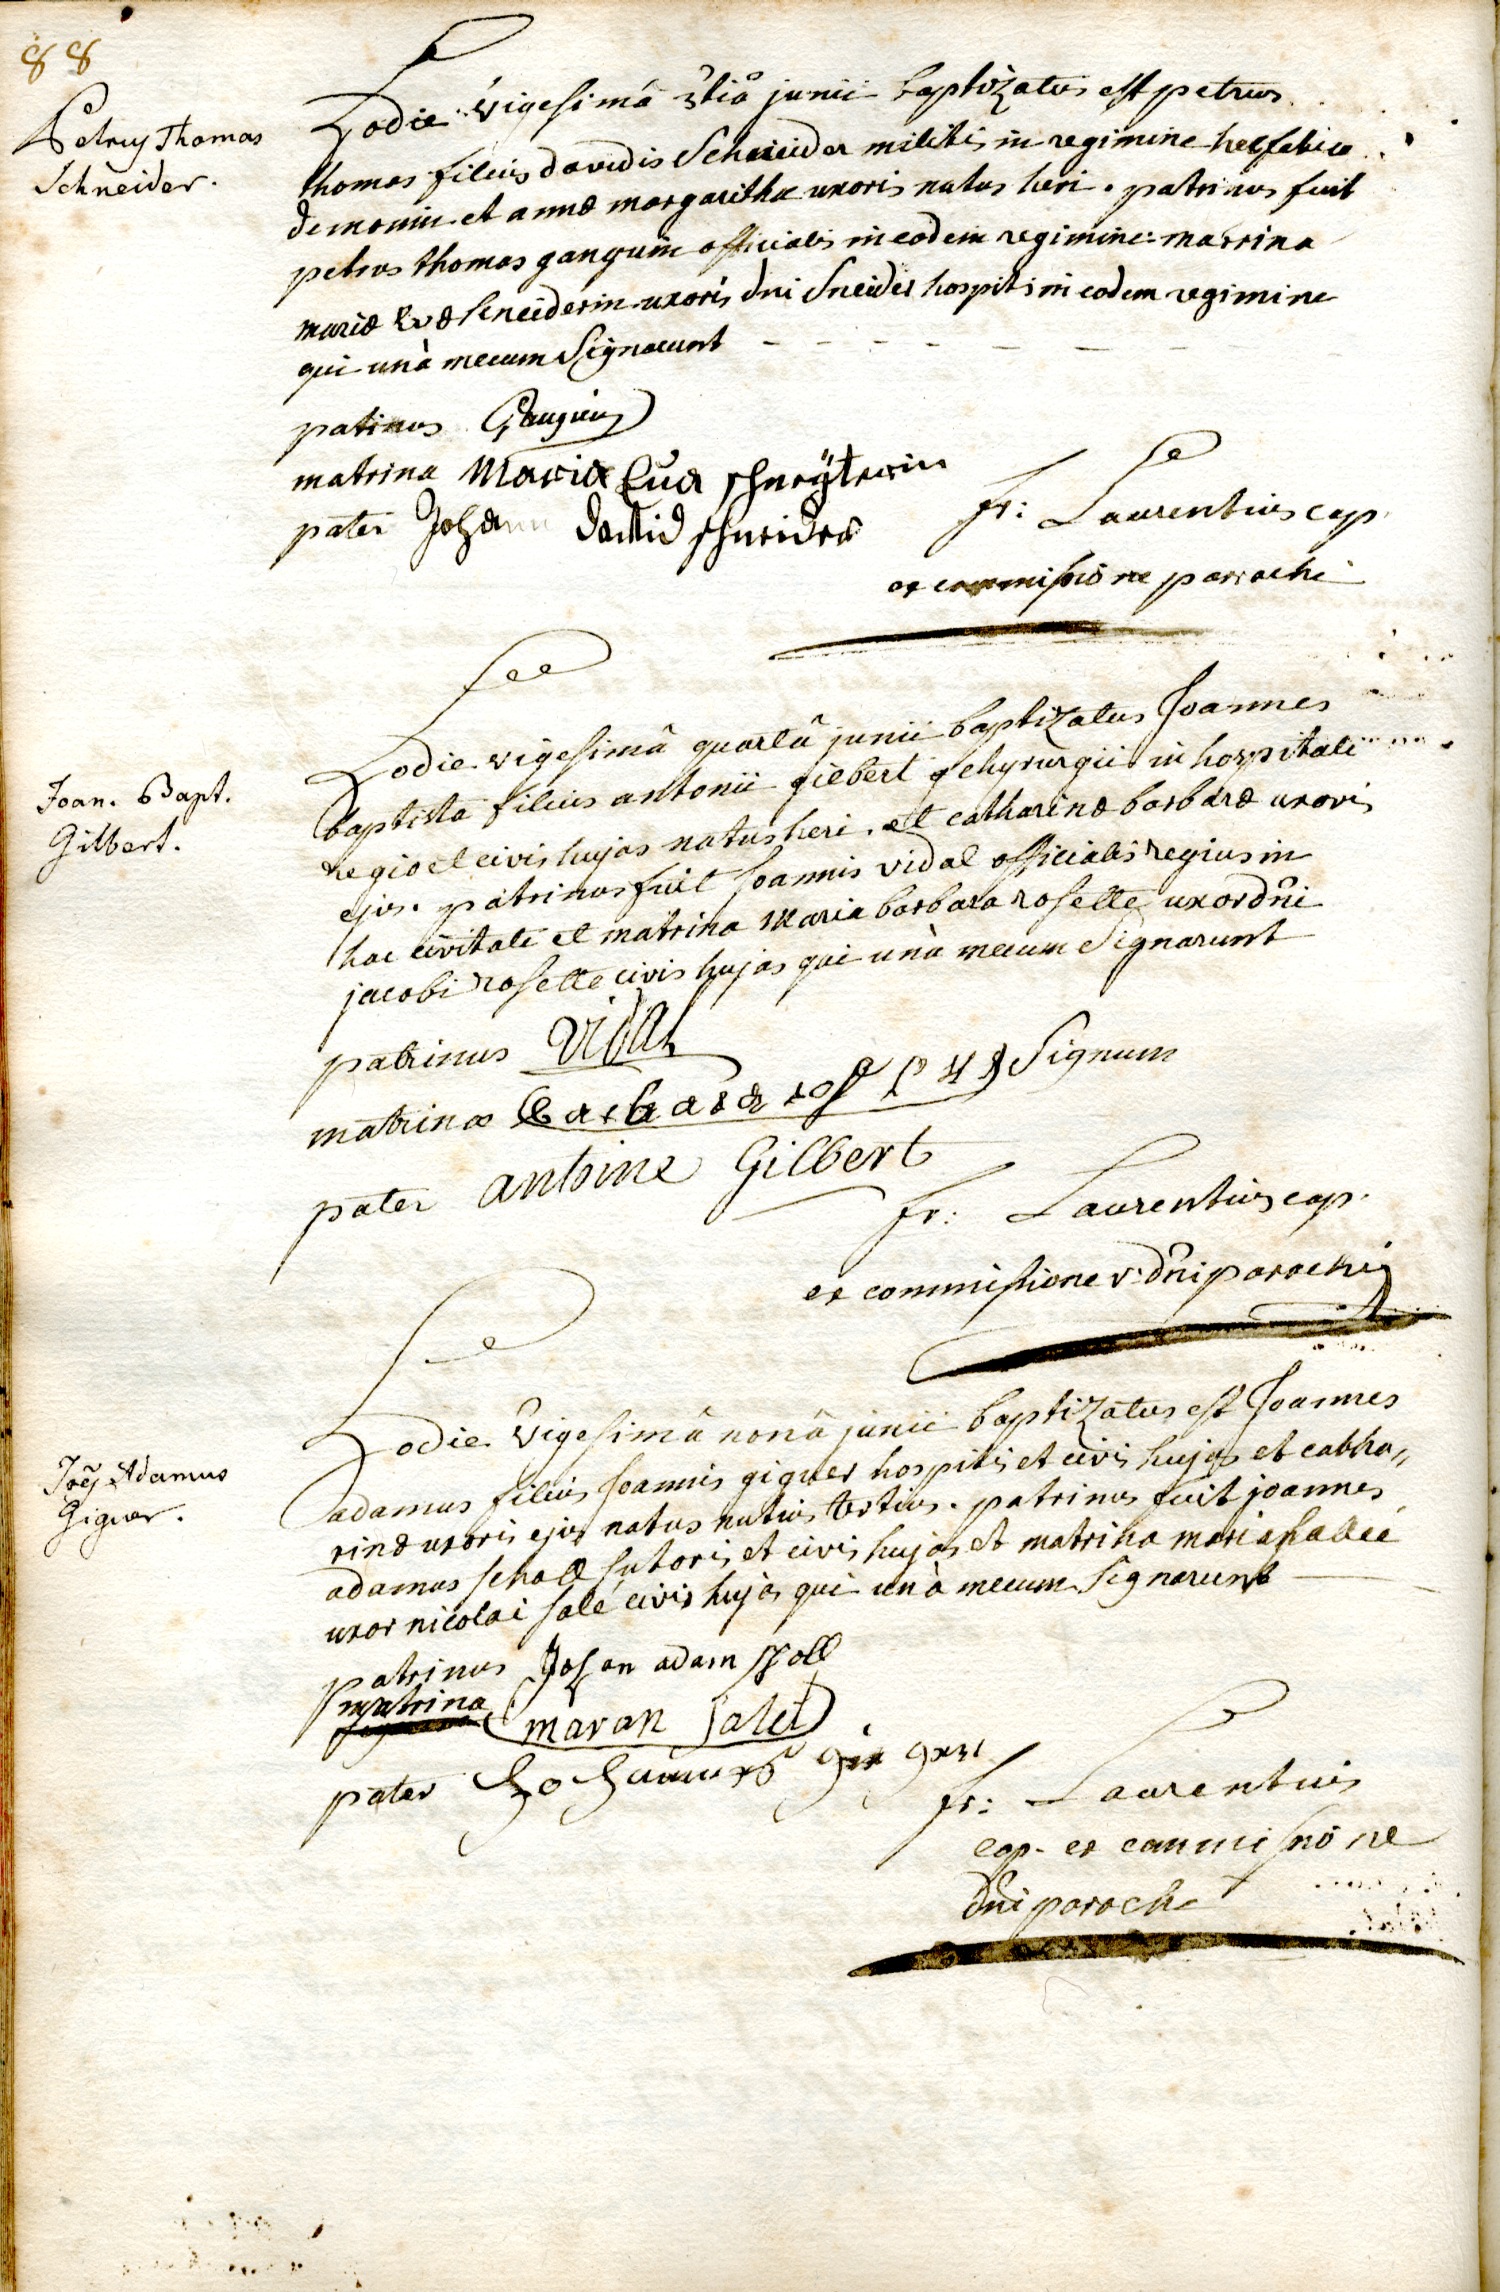 88
Petrus Thomas
Schneider.
hodie vigesimâ 3tiâ junii baptizatus est petrus
thomas filius davidis Schneider militis in regimine helfetico
demonin et annæ margarithæ uxoris natus heri. patrinus fuit
petrus thomas ganguin officialis in eodem regimine matrina
mariæ Evæ sneiderin uxoris dni Sneider hospitis in eodem regimine
qui unà mecum Signarunt
patinus Ganguin
matrina Maria Eva schneÿterin
pater Johann david schneider
fr: Laurentius cap.
ex commissione parrochi
Joan. Bapt.
Gilbert.
hodie vigesimâ quartâ junii baptizatus Joannes
baptista filius antonii gilbert chyrurgii in hospitali
regio et civis hujas natus heri. et catharinæ barbaræ uxoris
ejus. patrinus fuit Joannis vidal officialis regius in
hac civitate et matrina Maria barbara roselle uxor dñi
jacobi roselle civis hujas qui unà mecum Signarunt
patrinus Vidal
matrinæ barbara Signum
pater antoine Gilbert
fr: Laurentius cap.
ex commissione v: dñi parochi
Joes Adamus
Giguer.
hodie vigesimâ nonâ junii baptizatus est Joannes
adamus filius Joannis giguer hospitis et civis hujas et catha,,
rinæ uxoris ejus natus nutius tertius. patrinus fuit joannes
adamus scholl sutoris et civis hujas et matrina maria salleé
uxor nicolai salé civis hujas qui unà mecum Signarunt
patrinus Johan adam scholl
matrina maran salet
pater Johannes
fr: Laurentius
cap. ex commissione
dñi paroch